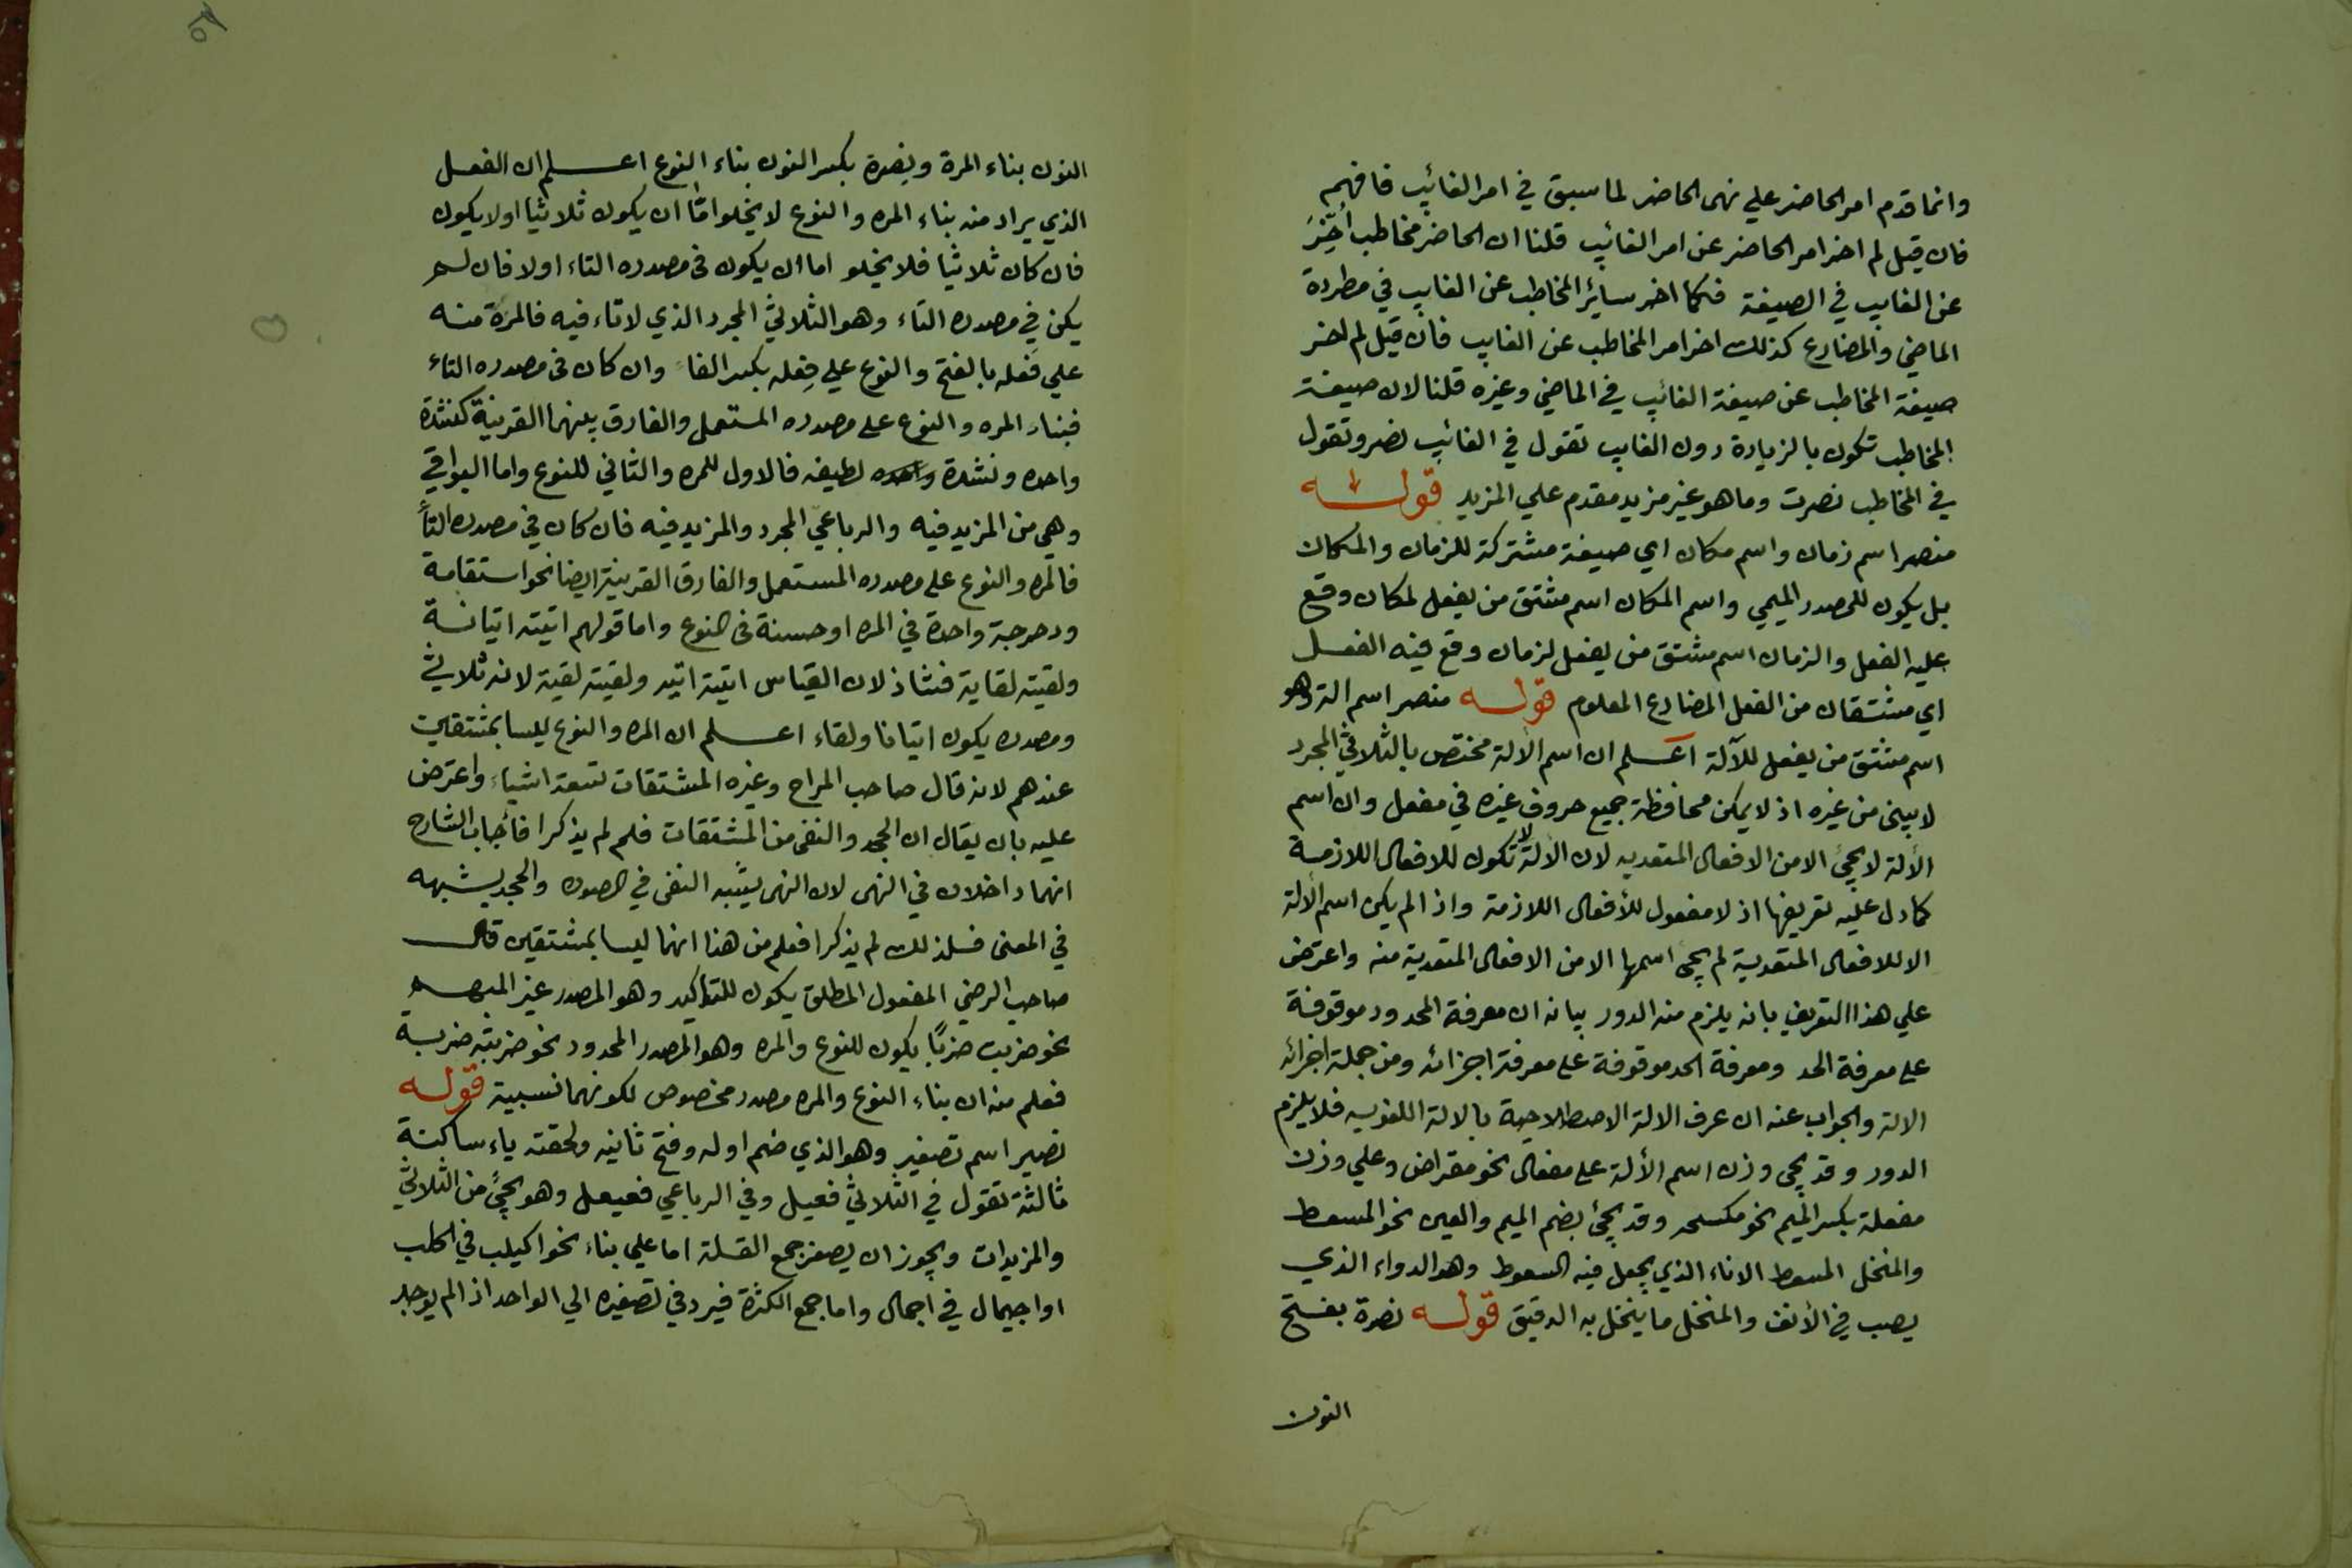 وانما قدم امر الحاضر علي نهى الحاضر لما سبق في امر الغائب فافهم
فان قيل لم اخر امر الحاضر عن امر الغائب قلنا ان الحاضر مخاطب أخّرَ
عن الغايب في الصيغة فكما اخر سائر المخاطب عن الغايب في مطردة
الماضي والمضارع كذلك اخر امر المخاطب عن الغايب فان قيل لم اخر
صيغة المخاطب عن صيغة الغائب في الماضي وغيره قلنا لان صيغة
المخاطب تكون بالزيادة دون الغايب تقول في الغائب نصر وتقول
في المخاطب نصرت وما هو غير مزيد مقدم علي المزيد قوله
منصر اسم زمان واسم مكان اي صيغة مشتركة للزمان والمكان
بل يكون للمصدر الميمي واسم المكان اسم مشتق من يفعل لمكان وقع
عليه الفعل والزمان اسم مشتق من يفعل لزمان وقع فيه الفعل
اي مشتقان من الفعل المضارع المعلوم قوله منصر اسم الة وهو
اسم مشتق من يفعل للآلة اعلم ان اسم الالة مختص بالثلاثي المجرد
لا يبنى من غيره اذ لا يمكن محافظة جميع حروف غيره في مفعل وان اسم
الألة لا يجئ الا من الافعال المتعديه لان الالة لا تكون للافعال اللازمة
كما دل عليه تعريفها اذ لا مفعول للأفعال اللازمة واذا لم يكن اسم الالة
الا للافعال المتعدية لم يجئ اسمها الا من الافعال المتعدية منه واعترض
علي هذا التعريف بانه يلزم منه الدور بيانه ان معرفة المحدود موقوفة
علي معرفة الحد ومعرفة الحد موقوفة علي معرفة اجزائه ومن جملة اجزائه
الالة والجواب عنه ان عرف الالة الاصطلاحية بالالة اللغويه فلا يلزم
الدور وقد يجئ وزن اسم الألة علي مفعال نحو مقراض وعلي وزن
مفعلة بكسر الميم نحو مكسحه وقد يجئ بضم الميم والعين نحو المسعط
والمنخل المسعط الاناء الذي يجعل فيه السعوط وهو الدواء الذي
يصب في الأنف والمنخل ما ينخل به الدقيق قوله نصرة بفتح
النون
النون بناء المرة ونصرة بكسر النون بناء النوع اعلم ان الفعل
الذي يراد منه بناء المره والنوع لا يخلو امّا ان يكون ثلاثيا اولا يكون
فان كان ثلاثيا فلا يخلو اما ان يكون في مصدره التاء اولا فان لم
يكن في مصدره التاء وهو الثلاثي المجرد الذي لا تاء فيه فالمرة منه
علي فَعله بالفتح والنوع علي فِعله بكسر الفاء وان كان في مصدره التاء
فبناء المره والنوع علي مصدره المستعمل والفارق بينهما القرينة كنشدة
واحده ونشدة لطيفه فالاول للمره والثاني للنوع واما البواقي
وهي من المزيد فيه والرباعي المجرد والمزيد فيه فان كان في مصدره التأ
فالمره والنوع علي مصدره المستعمل والفارق القرينة ايضا نحو استقامة
ودحرجة واحدة في المره او حسنة في النوع واما قولهم اتيته اتيانة
ولقيته لقاية فشاذ لان القياس اتيته اتيه ولقيته لقية لانه ثلاثي
ومصدره يكون اتيانا ولقاء اعلم ان المره والنوع ليسا بمشتقين
عندهم لانه قال صاحب المراح وغيره المشتقات تسعة اشياء واعترض
عليه بان يقال ان الجحد والنفي من المشتقات فلم لم يذكرا فأجاب الشارح
انهما داخلان في النهى لان النهى يشبه النفى في الصوره والجحد يشبهه
في المعنى فلذلك لم يذكرا فعلم من هذا انهما ليسا بمشتقين قال
صاحب الرضي المفعول المطلق يكون للتأكيد وهو المصدر غير المبهم
نحو ضربت ضربًا يكون للنوع والمره وهو المصدر المحدود نحو ضربته ضربة
فعلم منه ان بناء النوع والمره مصدر مخصوص لكونهما نسبية قوله
نصير اسم تصغير وهو الذي ضم اوله وفتح ثانيه ولحقته ياء ساكنة
ثالثة تقول في الثلاثي فعيل وفي الرباعي فعيعل وهو يجئ من الثلاثي
والمزيدات ويجوز ان يصغر جمع القلة اما علي بناء نحو اكيلب في اكلب
او اجيمال في اجمال واما جمع الكثرة فيرد في تصغيره الي الواحد اذا لم يوجد